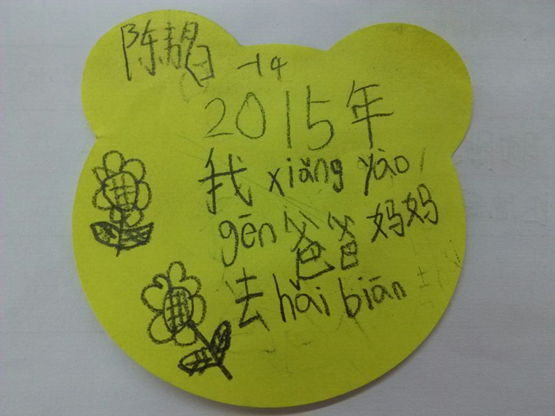 陈
一4
2015年
我 xiǎng yào,
gēn 爸爸 妈妈
去 hǎi biān